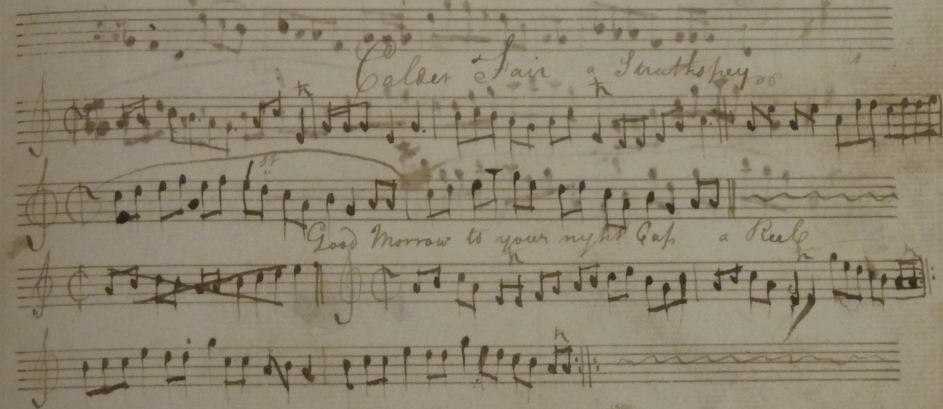 Calder Fair a Strathspey
Good Morrow to your night Cap a Reel